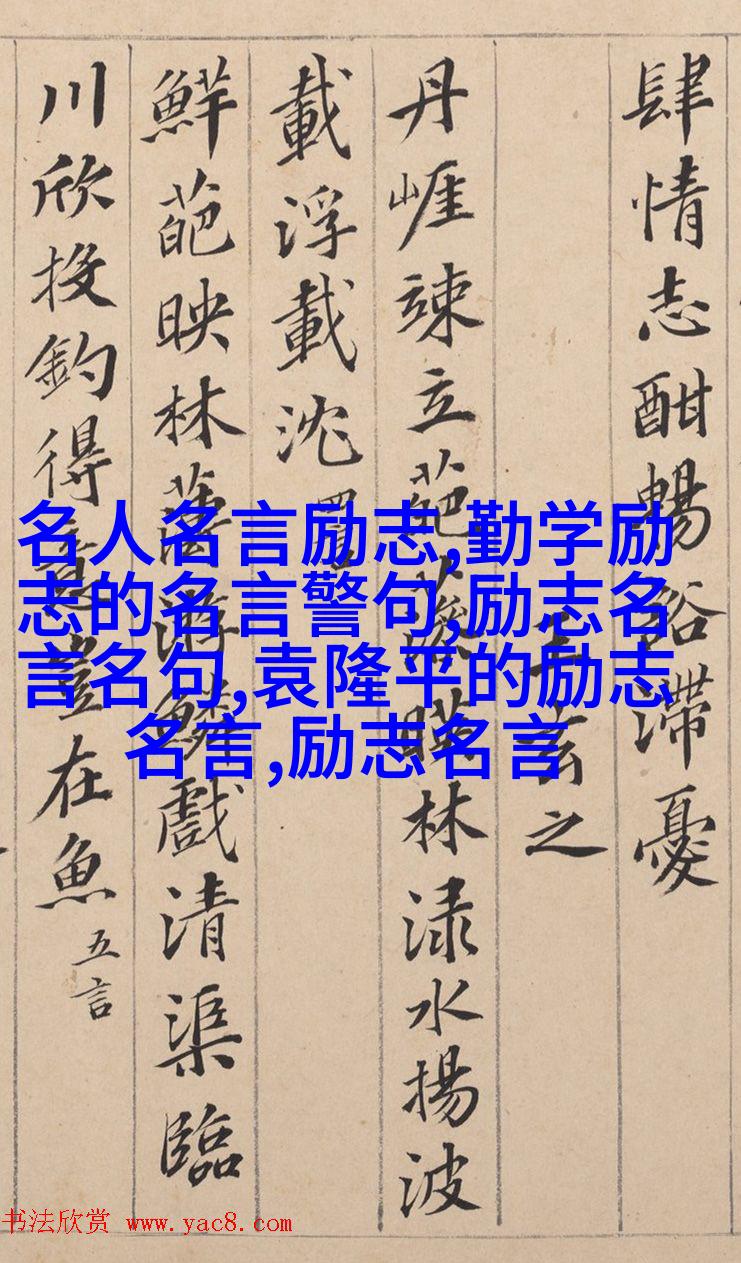 肆情志酣暢豁滯憂
王玄之
丹崖竦立葩藻暎林渌水揚波
載浮載沈
鮮葩映林薄游鱗戲清渠臨
川欣投釣得意豈在魚 五言
名人名言励志,勤学励
志的名言警句,励志名
言名句,袁隆平的励志
名言,励志名言
书法欣赏 www.yac8.com